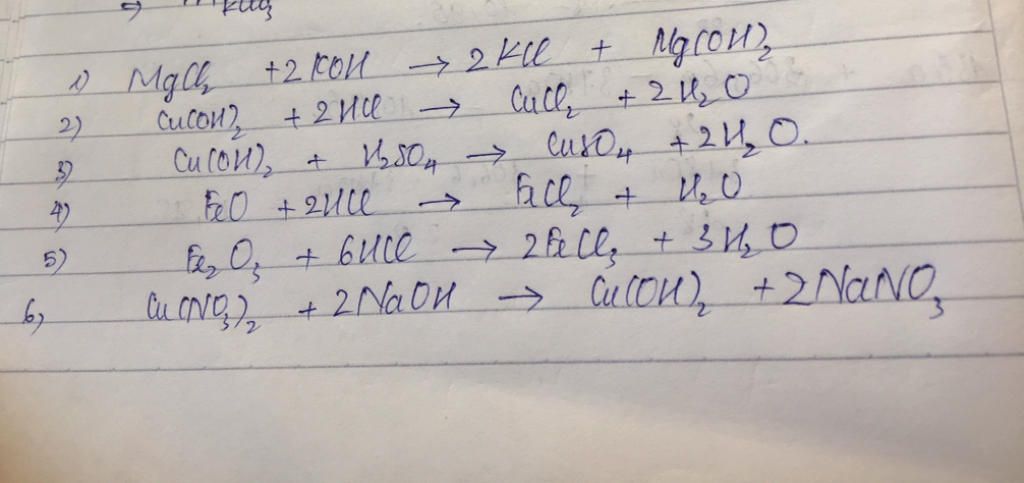 1) MgCl₂ + 2KOH → 2KCl + Mg(OH)₂
2) Cu(OH)₂ + 2HCl → CuCl₂ + 2H₂O
3) Cu(OH)₂ + H₂SO₄ → CuSO₄ + 2H₂O.
4) FeO + 2HCl → FeCl₂ + H₂O
5) Fe₂O₃ + 6HCl → 2FeCl₃ + 3H₂O
6) Cu(NO₃)₂ + 2NaOH → Cu(OH)₂ + 2NaNO₃